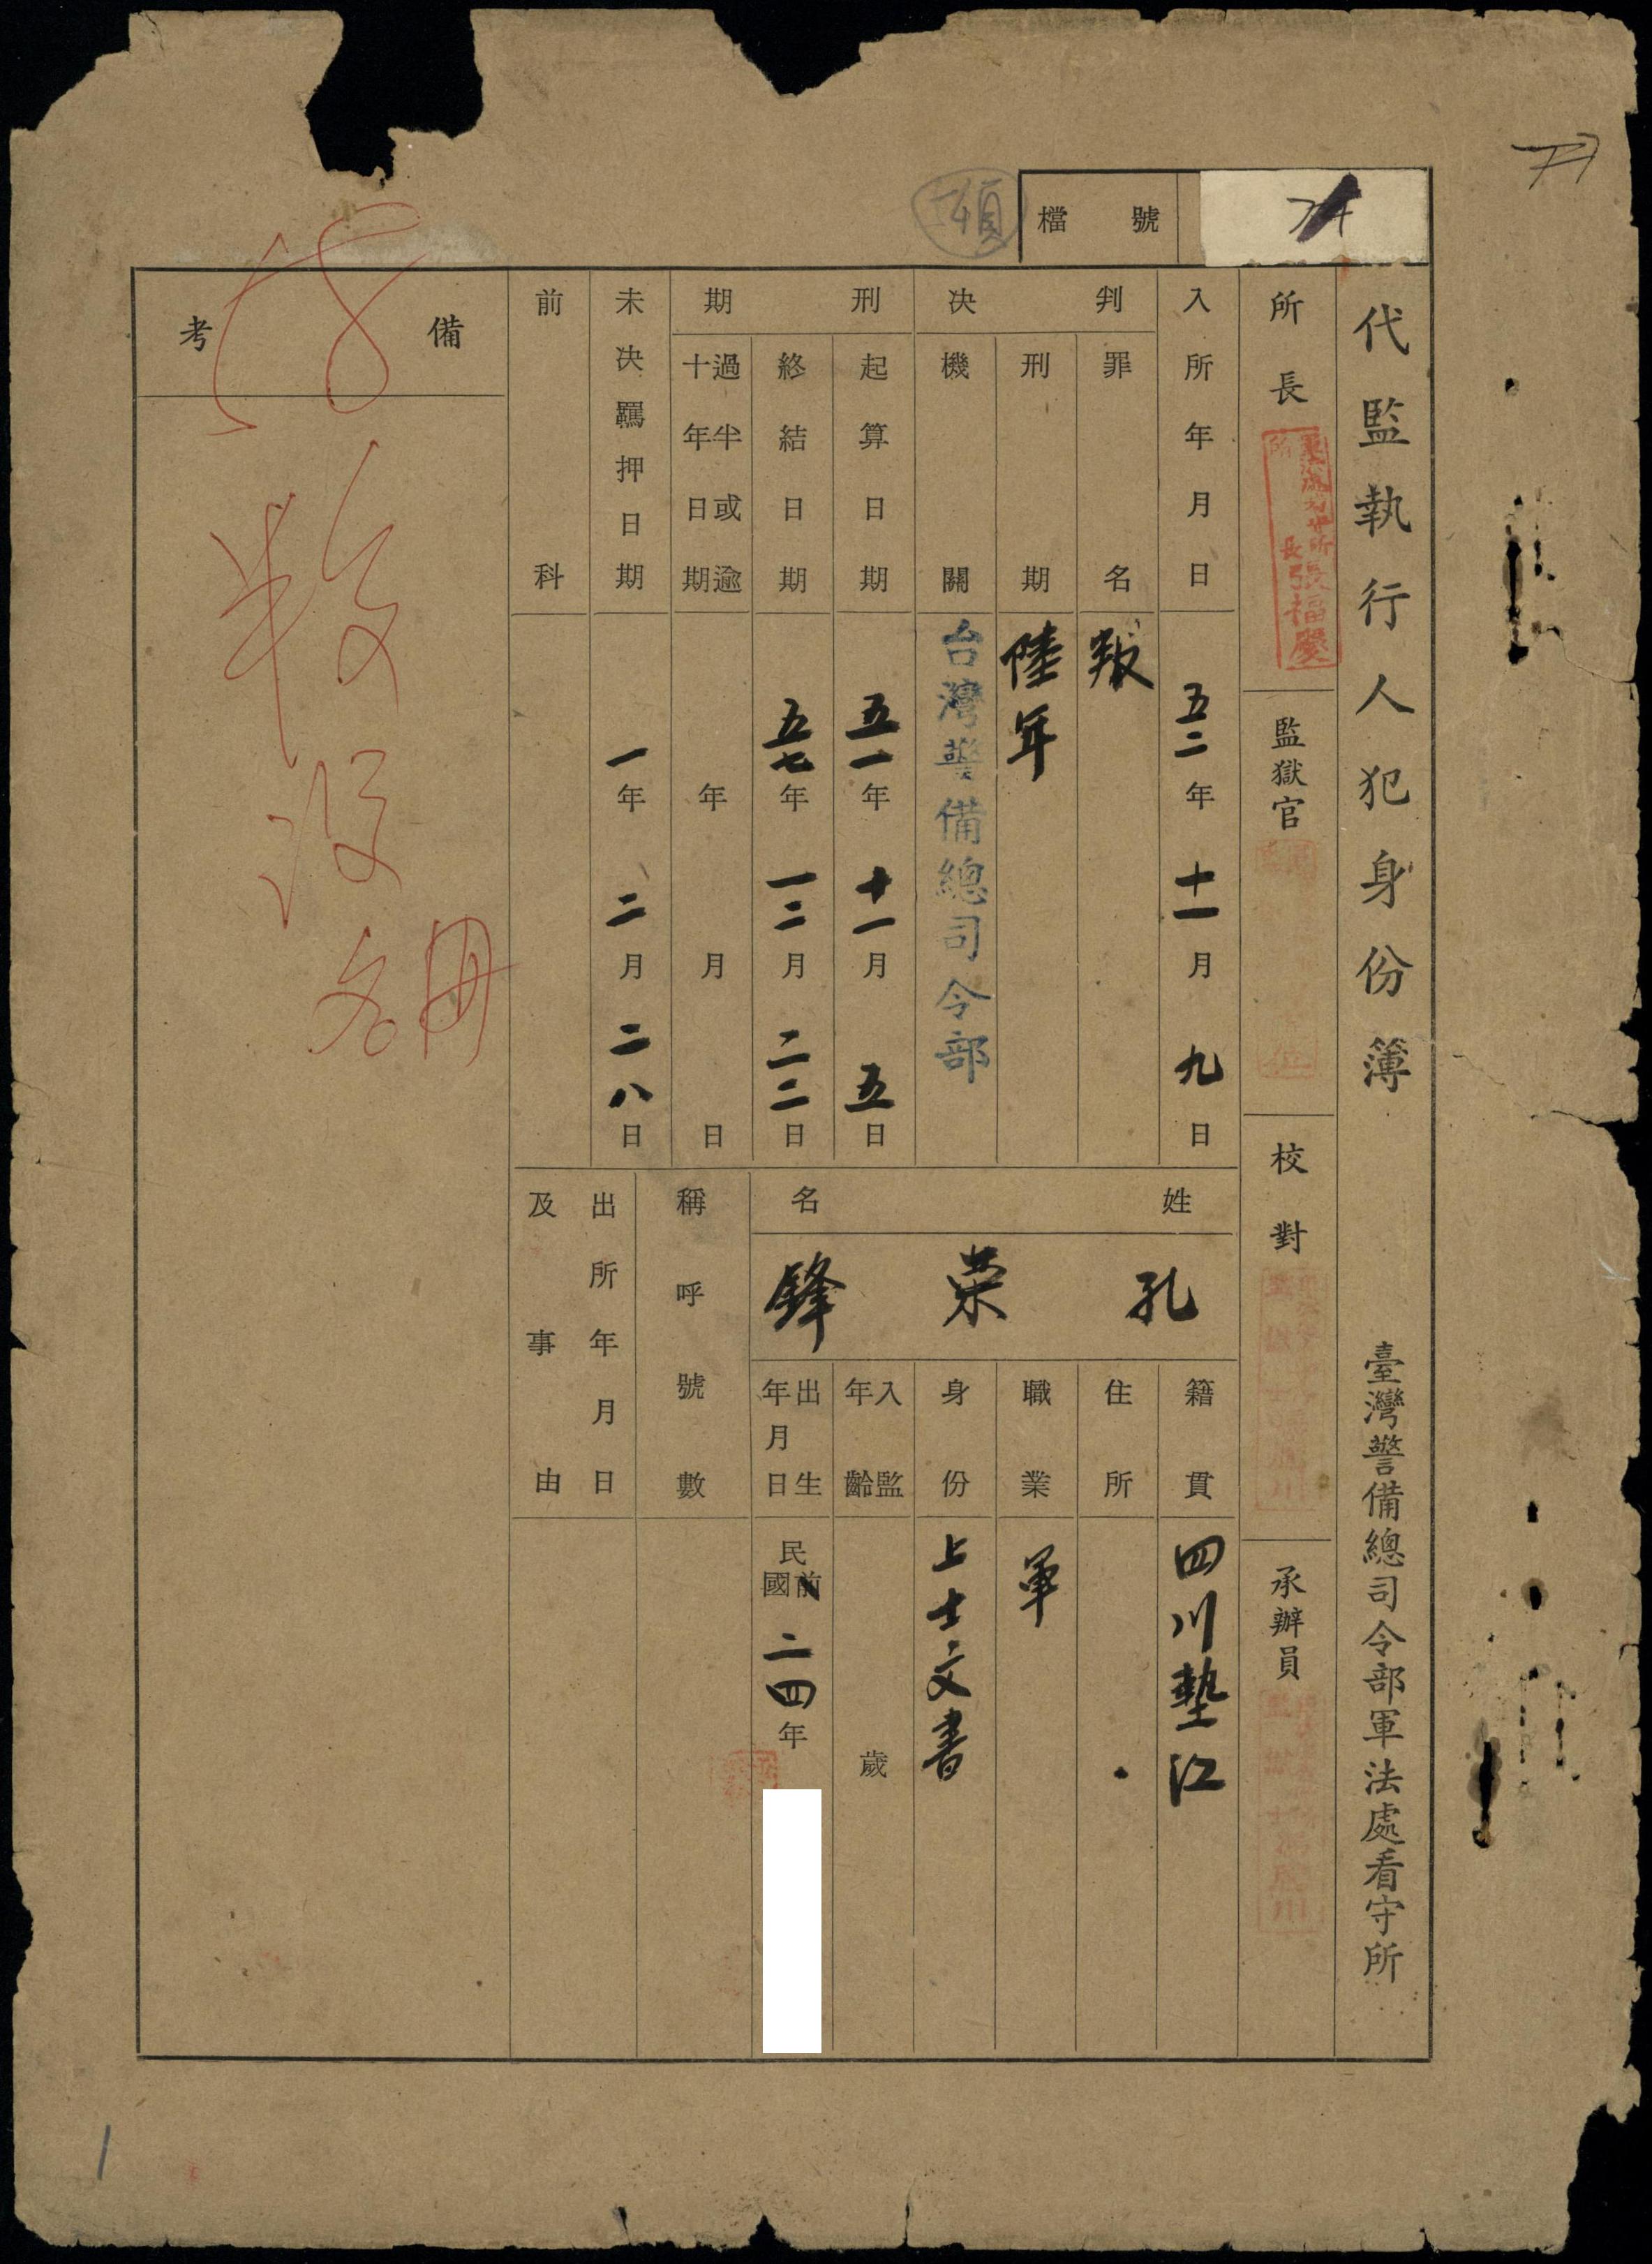 檔號
代監執行人犯身份簿 臺灣警備總司令部軍法處看守所
所長 張福慶
監獄官
校對
承辦員
入所年月日 五二年十一月九日
判決
罪名 叛
刑期 陸年
機關 台灣警備總司令部
刑期
起算日期 五一年十一月五日
終結日期 五七年一二月二二日
過半或逾十年日期 年月日
未決羈押日期 一年二月二八日
前科
姓名 孔榮鋒
籍貫 四川墊江
住所
職業 軍
身份 上士文書
入監年齡 歲
出生年月日 民國前二四年
稱呼號數
出所年月日及事由
備考
名冊
1